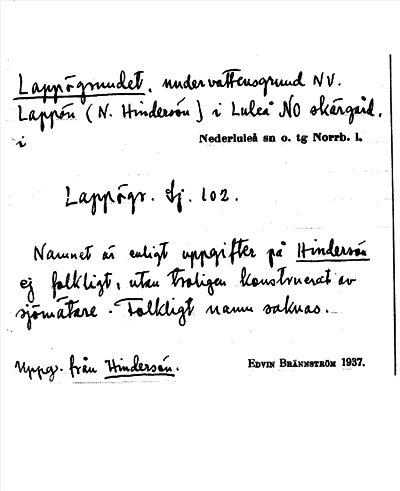 Lappögrundet, undervattensgrund NV.
Lappön (N. Hindersön) i Luleå NO skärgård.
i Nederluleå sn o. tg Norrb. l.
Lappögr. Sj. 102.
Namnet är enligt uppgifter på Hindersön
ej folkligt, utan troligen konstruerat av
sjömätare. Folkligt namn saknas.
Uppg. från Hindersön. EDVIN BRÄNNSTRÖM 1937.